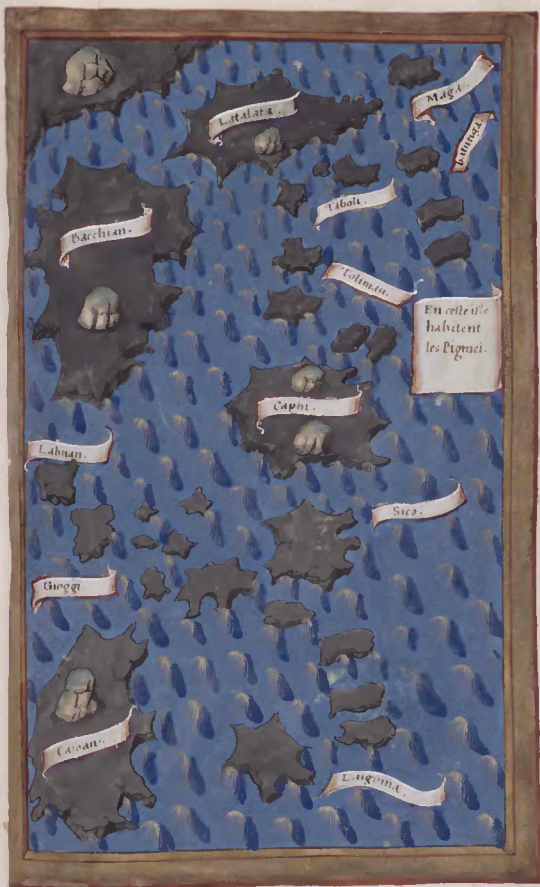 Maga.
Batutiga
Latalata.
Taboli.
Bacchian.
Tolimau.
En ceste isle
habitent
les Pigmei.
Caphi.
Labuan.
Sico.
Gioggi
Caioan.
Laigoma.